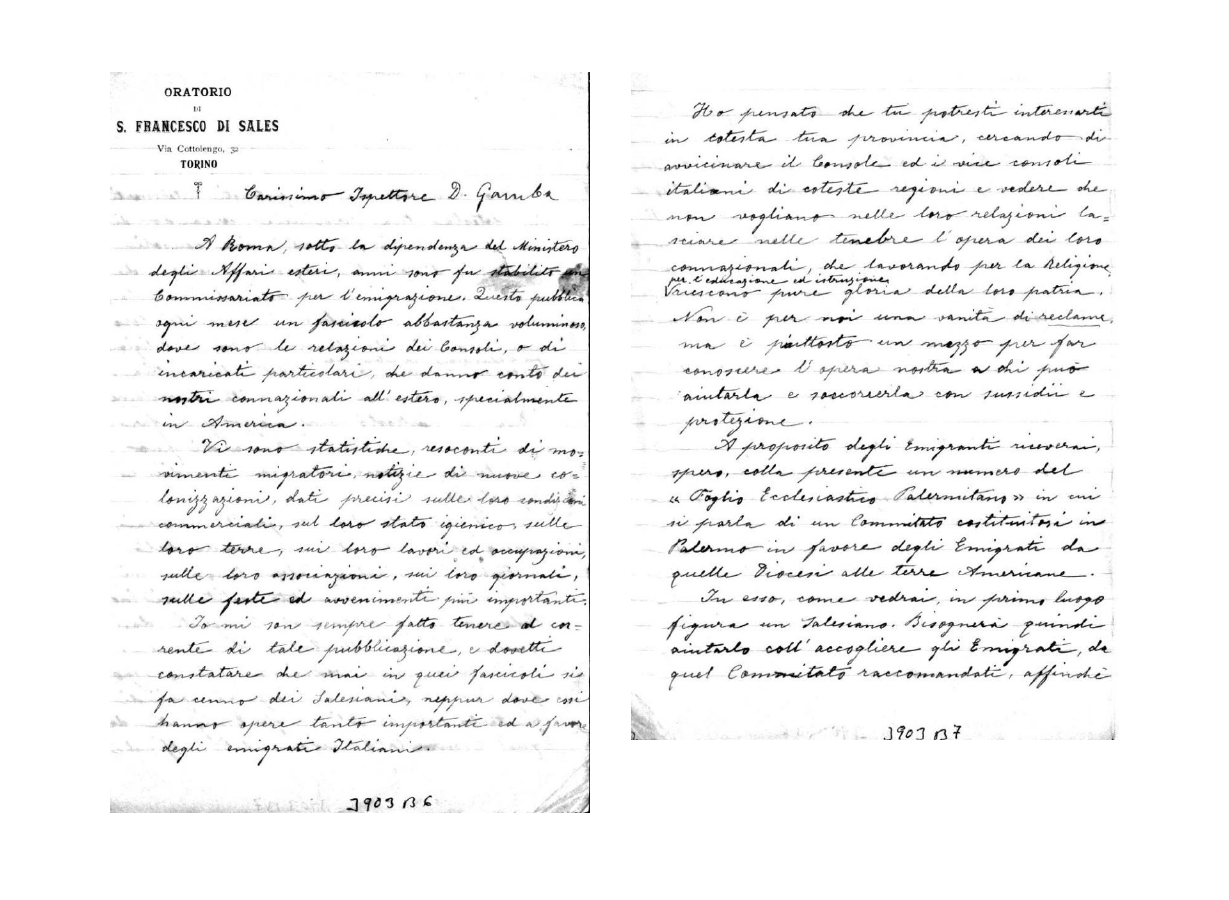 ORATORIO
DI
S. FRANCESCO DI SALES
Via Cottolengo, 32
TORINO
Carissimo Ispettore D. Gamba
A Roma, sotto la dipendenza del Ministero
degli Affari esteri, anni sono fu stabilito un
Commissariato per l'emigrazione. Questo pubblica
ogni mese un fascicolo abbastanza voluminoso,
dove sono le relazioni dei Consoli, o di
incaricati particolari, che danno conto dei
nostri connazionali all'estero, specialmente
in America.
Vi sono statistiche, resoconti di mo=
vimenti migratori, notizie di nuove co=
lonizzazioni, dati precisi sulle loro condizioni
commerciali, sul loro stato igienico, sulle
loro terre, sui loro lavori ed occupazioni,
sulle loro associazioni, sui loro giornali,
sulle feste ed avvenimenti più importanti.
Io mi son sempre fatto tenere al cor=
rente di tale pubblicazione, e dovetti
constatare che mai in quei fascicoli si
fa cenno dei Salesiani, neppur dove essi
hanno opere tanto importanti ed a favore
degli emigrati Italiani.
J903 B6
Ho pensato che tu potresti interessarti
in cotesta tua provincia, cercando di
avvicinare il Console ed i vice consoli
italiani di coteste regioni e vedere che
non vogliano nelle loro relazioni la=
sciare nelle tenebre l'opera dei loro
connazionali, che lavorando per la Religione,
per l'educazione ed istruzione,
riescono pure gloria della loro patria.
Non è per noi una vanità di reclame,
ma è piuttosto un mezzo per far
conoscere l'opera nostra a chi può
aiutarla e soccorrerla con sussidii e
protezione.
A proposito degli Emigranti riceverai,
spero, colla presente un numero del
« Foglio Ecclesiastico Palermitano » in cui
si parla di un Commitato costituitosi in
Palermo in favore degli Emigrati da
quelle Diocesi alle terre Americane.
In esso, come vedrai, in primo luogo
figura un Salesiano. Bisognerà quindi
aiutarlo coll'accogliere gli Emigrati, da
quel Commitato raccomandati, affinchè
J903 B7